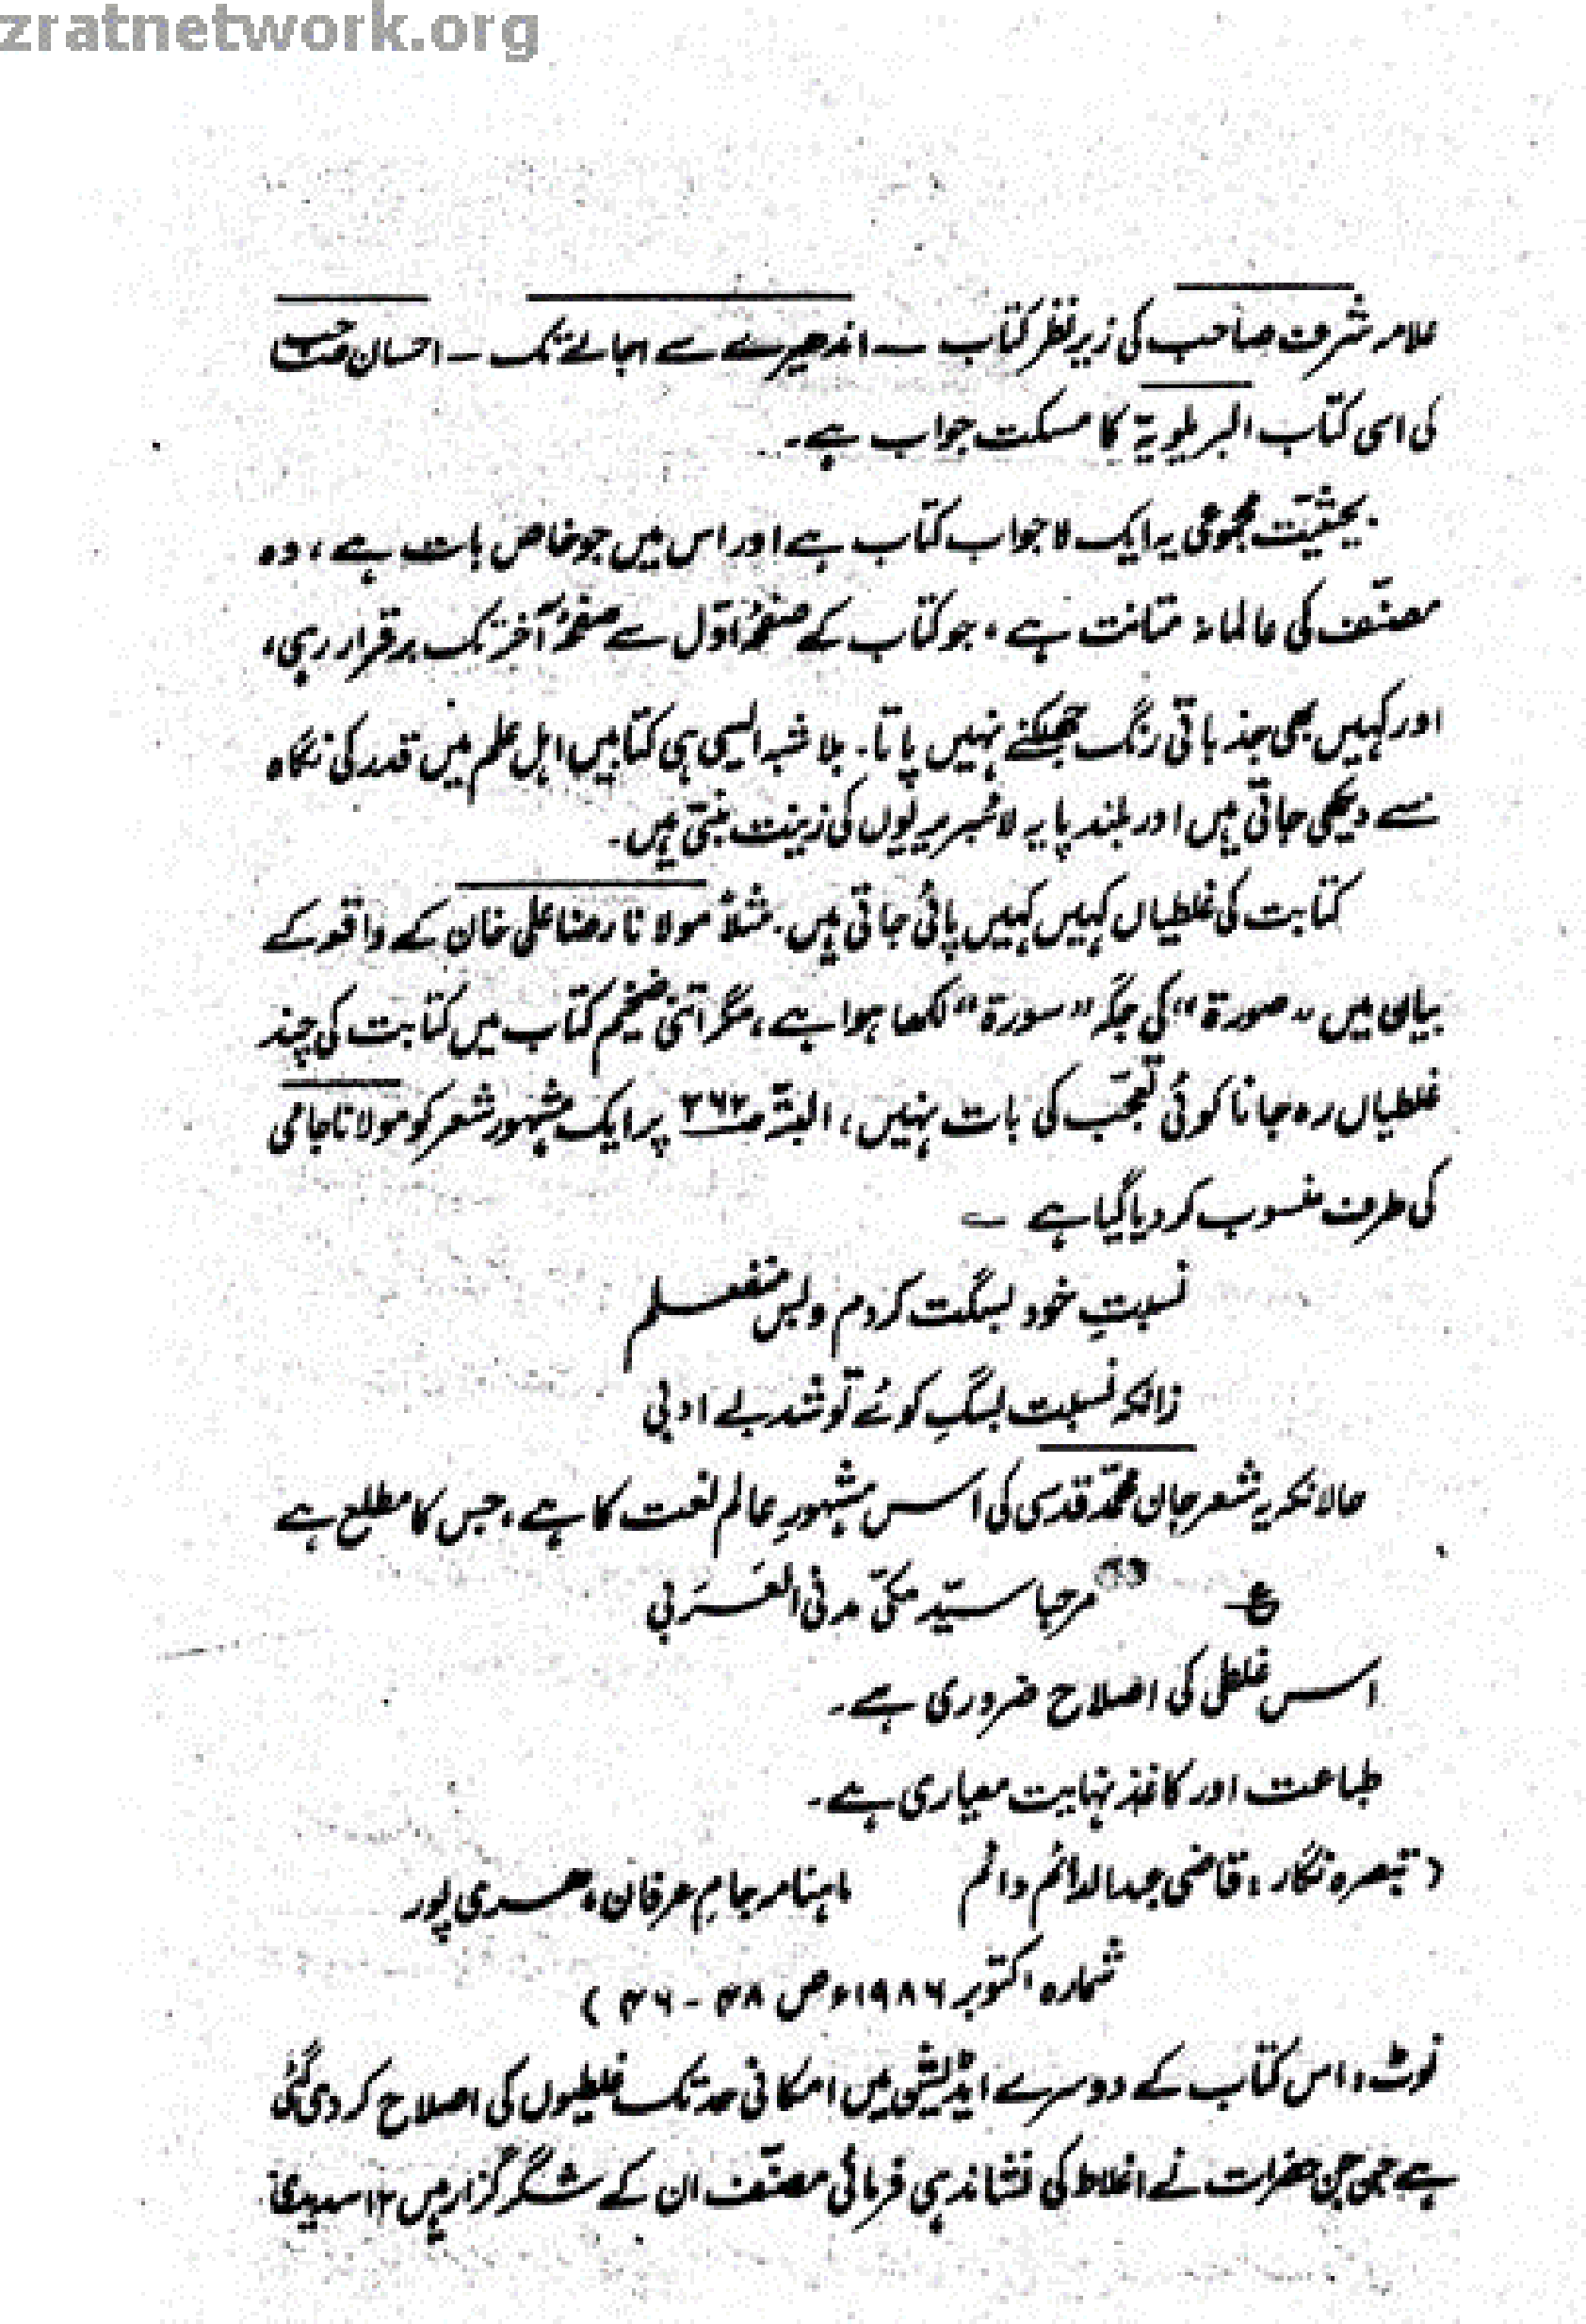 zratnetwork.org
علامہ شرف صاحب کی زیر نظر کتاب — اندھیرے سے اجالے تک — احسان صاحب
کی اسی کتاب البریلویۃ کا مسکت جواب ہے۔
بحیثیت مجموعی یہ ایک لاجواب کتاب ہے اور اس میں جو خاص بات ہے، وہ
مصنّف کی عالمانہ متانت ہے، جو کتاب کے صفحۂ اوّل سے صفحۂ آخر تک برقرار رہی،
اور کہیں بھی جذباتی رنگ جھلکنے نہیں پاتا۔ بلاشبہ ایسی ہی کتابیں اہل علم میں قدر کی نگاہ
سے دیکھی جاتی ہیں اور بلند پایہ لائبریریوں کی زینت بنتی ہیں۔
کتابت کی غلطیاں کہیں کہیں پائی جاتی ہیں۔ مثلاً مولانا رضا علی خان کے واقعہ کے
بیان میں "صورۃ" کی جگہ "سورۃ" لکھا ہوا ہے، مگر اتنی ضخیم کتاب میں کتابت کی چند
غلطیاں رہ جانا کوئی تعجّب کی بات نہیں، البتّہ صـ۲۶۲ پر ایک مشہور شعر کو مولانا جامی
کی طرف منسوب کر دیا گیا ہے ؎
نسبتِ خود بسگت کردم و بس منفعلم
زانکہ نسبت بسگِ کوئے تو شد بے ادبی
حالانکہ یہ شعر جان محمّد قدسی کی اس مشہورِ عالم نعت کا ہے، جس کا مطلع ہے
ع مرحبا سیّد مکّی مدنی العَرَبی
اس غلطی کی اصلاح ضروری ہے۔
طباعت اور کاغذ نہایت معیاری ہے۔
(تبصرہ نگار: قاضی عبدالدائم دائم ماہنامہ جامِ عرفان، ہری پور
شمارہ اکتوبر ۱۹۸۶ء ص ۴۸ - ۴۶)
نوٹ: اس کتاب کے دوسرے ایڈیشن میں امکانی حد تک غلطیوں کی اصلاح کر دی گئی
ہے جن جن حضرات نے اغلاط کی نشاندہی فرمائی مصنّف ان کے شکرگزار ہیں ۱۲ سدیدی